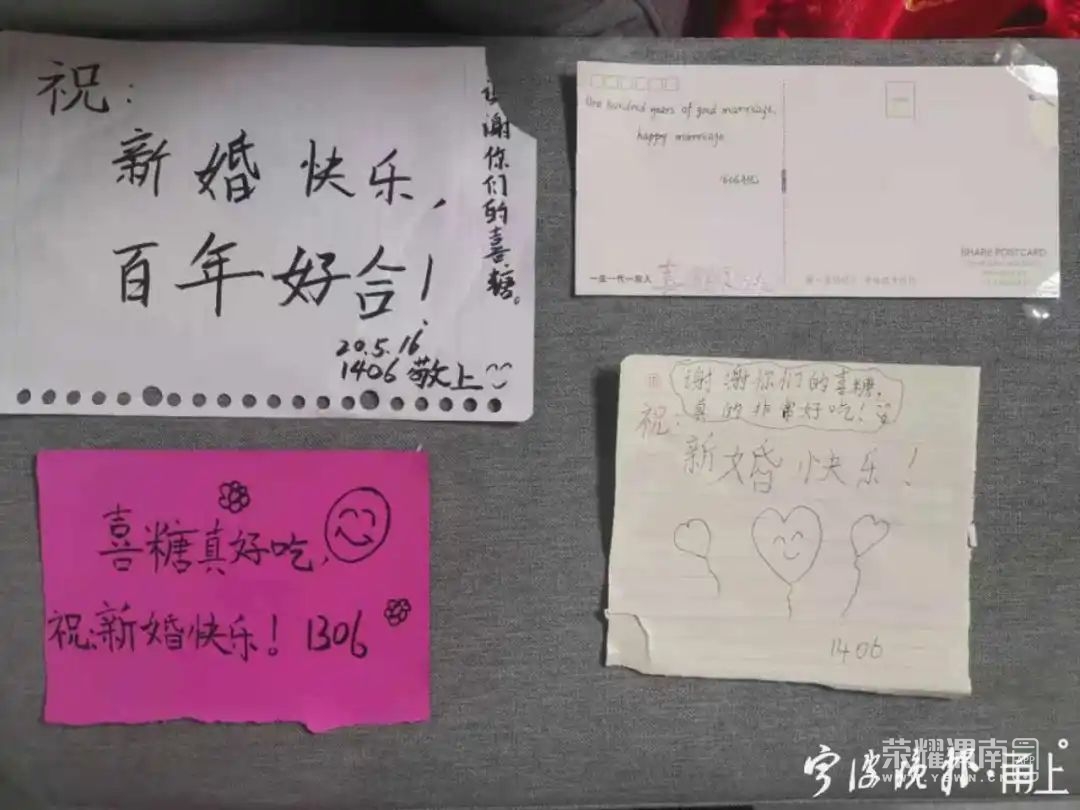 祝:
新婚快乐,
百年好合!
谢你们的喜糖。
20.5.16
1406 敬上
One hundred years of good marriage.
happy marriage
SHARE POSTCARD
一生一代一双人
喜糖真好吃,
祝:新婚快乐! 1306
谢谢你们的喜糖,
真的非常好吃!
祝:
新婚快乐!
1406
荣耀渭南
WWW.YEWN.CN
宁波晚报·甬上